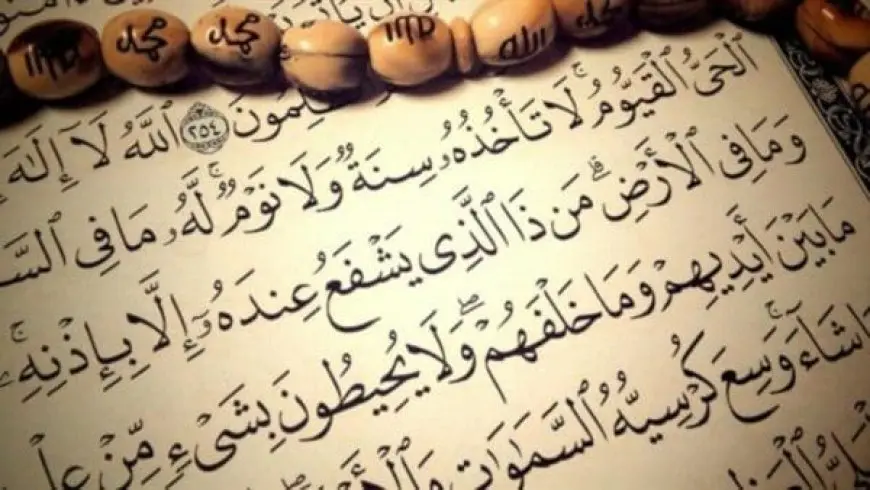 محمد
محمد
الله
محمد
لِمُونَ ٢٥٤ ٱللَّهُ لَآ إِلَٰهَ
ٱلْحَىُّ ٱلْقَيُّومُ ۚ لَا تَأْخُذُهُۥ سِنَةٌ وَلَا نَوْمٌ ۚ لَّهُۥ مَا فِى ٱلسَّ
وَمَا فِى ٱلْأَرْضِ ۗ مَن ذَا ٱلَّذِى يَشْفَعُ عِندَهُۥٓ إِلَّا بِإِذْنِهِۦ ۚ
مَا بَيْنَ أَيْدِيهِمْ وَمَا خَلْفَهُمْ ۖ وَلَا يُحِيطُونَ بِشَىْءٍ مِّنْ عِلْ
شَآءَ ۚ وَسِعَ كُرْسِيُّهُ ٱلسَّمَٰوَٰتِ وَٱلْأَ